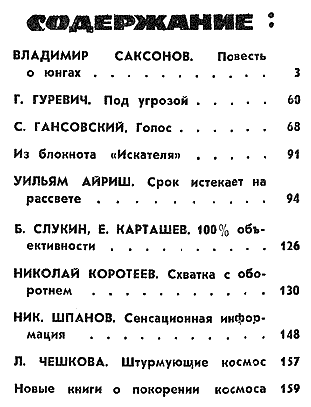 СОДЕРЖАНИЕ:
ВЛАДИМИР САКСОНОВ. Повесть
о юнгах . . . . . . . . . . . 3
Г. ГУРЕВИЧ. Под угрозой . . . . . 60
С. ГАНСОВСКИЙ. Голос . . . . . . 68
Из блокнота «Искателя» . . . . . 91
УИЛЬЯМ АЙРИШ. Срок истекает на
рассвете . . . . . . . . . . 94
Б. СЛУКИН, Е. КАРТАШЕВ. 100% объ-
ективности . . . . . . . . . 126
НИКОЛАЙ КОРОТЕЕВ. Схватка с обо-
ротнем . . . . . . . . . . 130
НИК. ШПАНОВ. Сенсационная инфор-
мация . . . . . . . . . . . 148
Л. ЧЕШКОВА. Штурмующие космос 157
Новые книги о покорении космоса 159